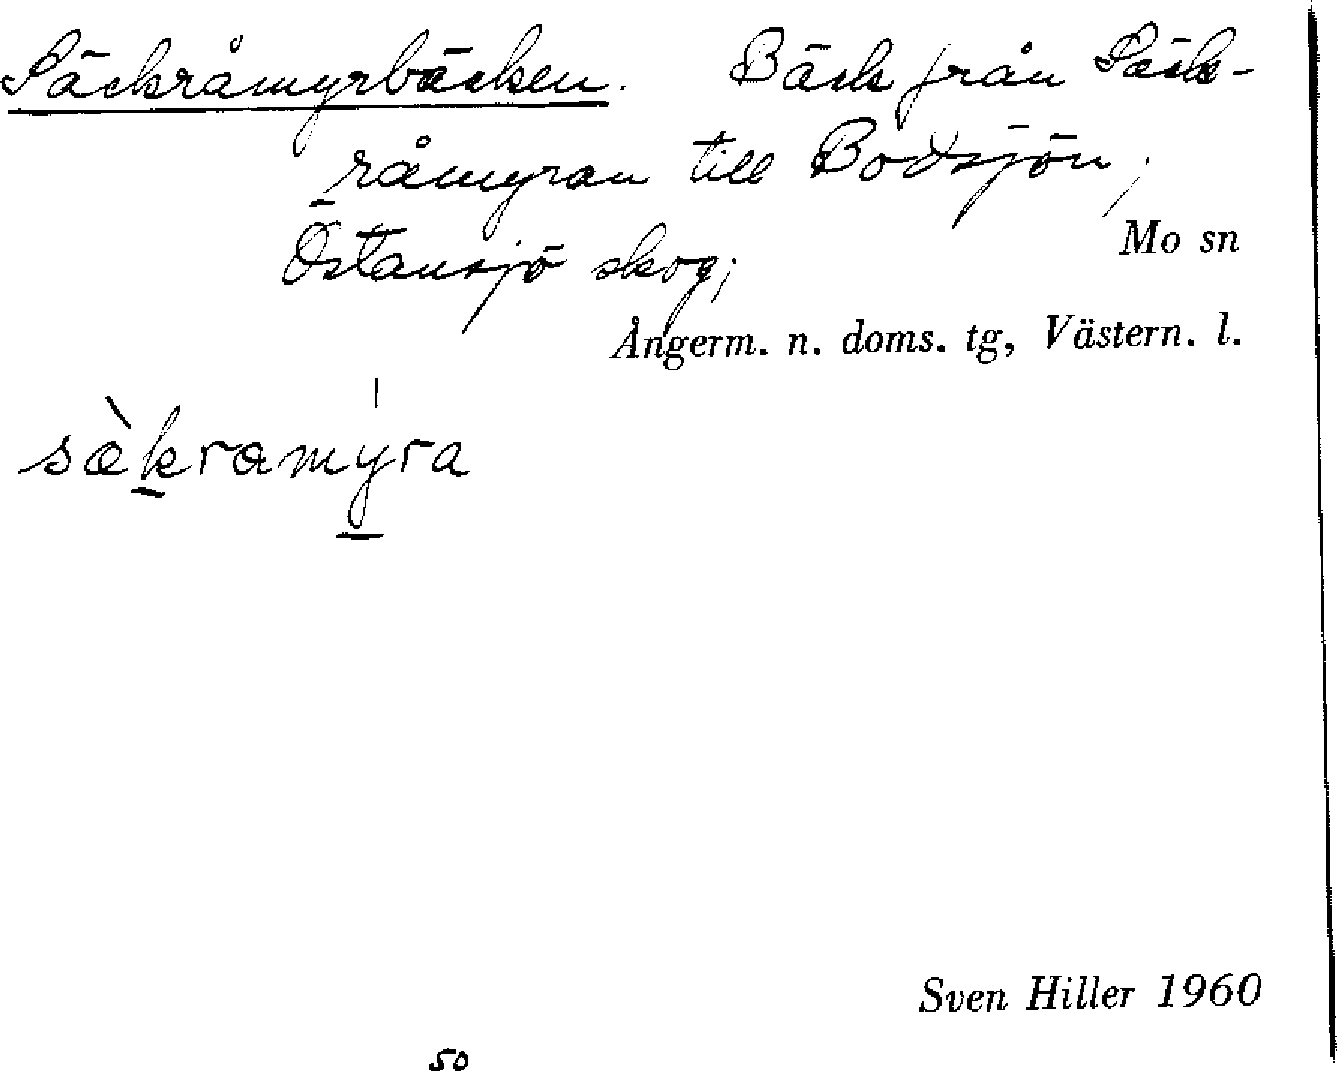 Säckråmyrbäcken. Bäck från Säck-
råmyran till Bodsjön;
Mo sn
Östansjö skog;
Ångerm. n. doms. tg, Västern. l.
sæ̀kramýra
Sven Hiller 1960
50